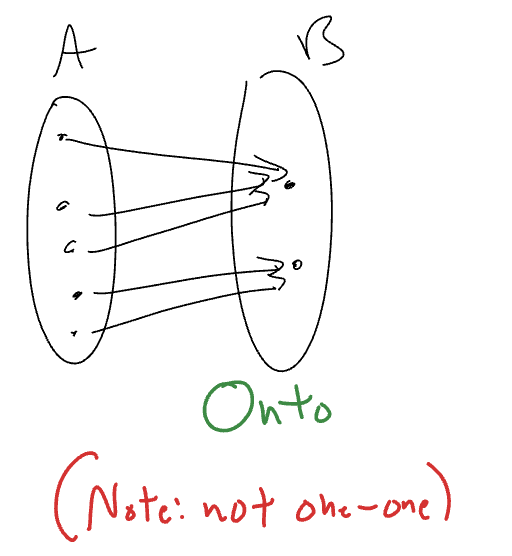 A B
Onto
(Note: not one-one)